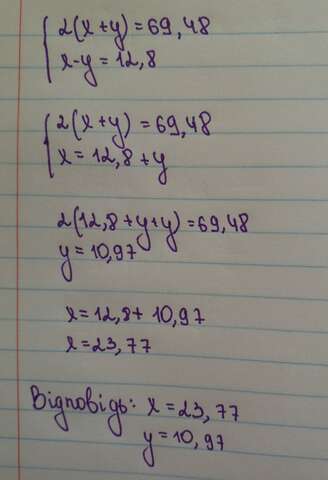 2(x+y)=69,48
x-y=12,8
2(x+y)=69,48
x=12,8+y
2(12,8+y+y)=69,48
y=10,97
x=12,8+10,97
x=23,77
Відповідь: x=23,77
y=10,97